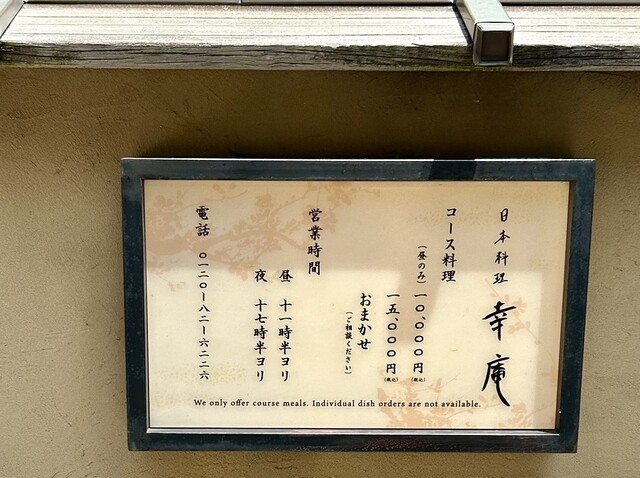 日本料理 幸庵
コース料理
(昼のみ) 一〇、〇〇〇円 (税込)
一五、〇〇〇円 (税込)
おまかせ
(ご相談ください)
営業時間
昼 十一時半ヨリ
夜 十七時半ヨリ
電話 〇一二〇ー八二ー六二二六
We only offer course meals. Individual dish orders are not available.